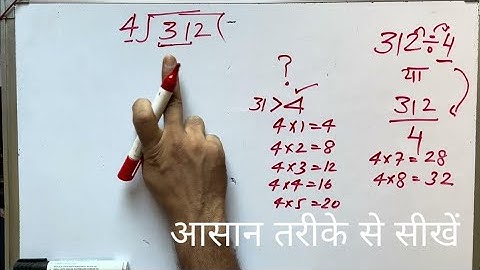 4)312(
?
31>4✓
4×1=4
4×2=8
4×3=12
4×4=16
4×5=20
312÷4
या
312/4
4×7=28
4×8=32
आसान तरीके से सीखें